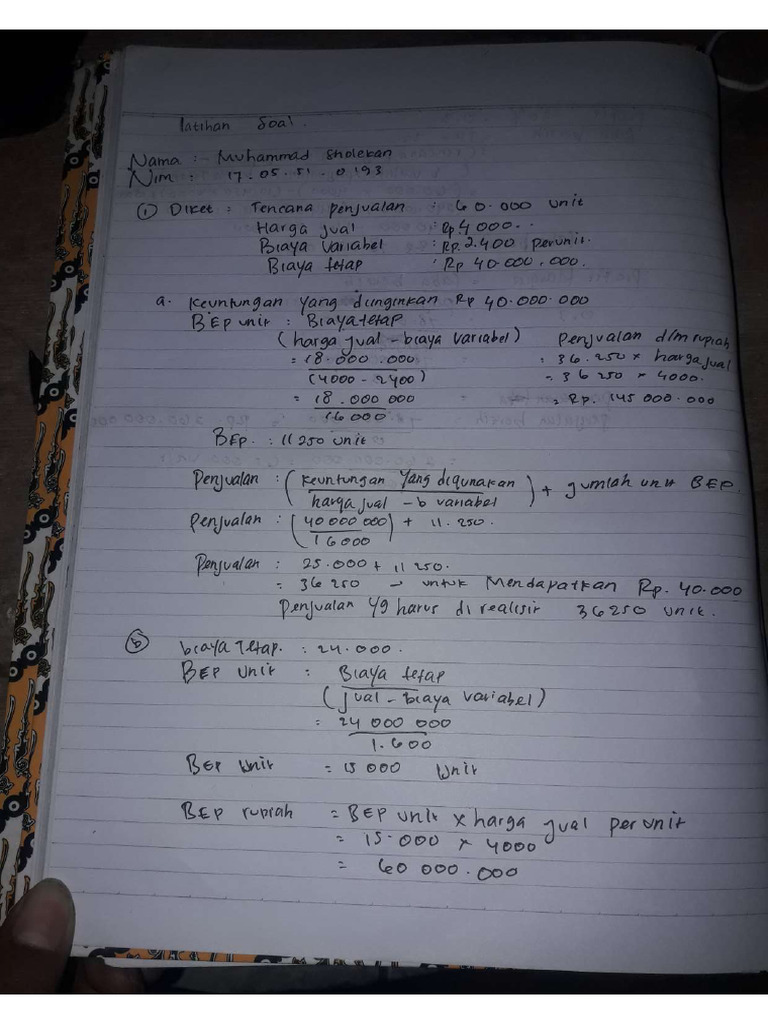 latihan Soal.
Nama : - Muhammad Sholekan
Nim : 17.05.51.0193
① Diket : Tencana penjualan : 60.000 unit
Harga jual : Rp 4000..
Biaya Variabel : Rp. 2.400 perunit.
Biaya tetap : Rp 40.000.000.
a. Keuntungan yang diinginkan Rp 40.000.000
BEP unit : Biaya tetap
(harga jual - biaya variabel)
= 18.000.000
(4000 - 2400)
= 18.000 000
16000
BEP. : 11 250 unit
Penjualan dlm rupiah
= 36.250 × harga jual
= 36 250 × 4000.
= Rp. 145 000.000
Penjualan : (keuntungan yang digunakan / harga jual - b variabel) + jumlah unit BEP.
Penjualan : (40 000 000 / 16000) + 11.250.
Penjualan : 25.000 + 11 250.
= 36 250 → untuk Mendapatkan Rp. 40.000
Penjualan yg harus di realisir 36 250 unit.
ⓑ biaya Tetap. : 24.000.
BEP Unit : Biaya tetap
(jual - biaya variabel)
= 24 000 000
1.600
BEP Unit = 15 000 Unit
BEP rupiah = BEP unit × harga jual per unit
= 15.000 × 4000
= 60 000.000